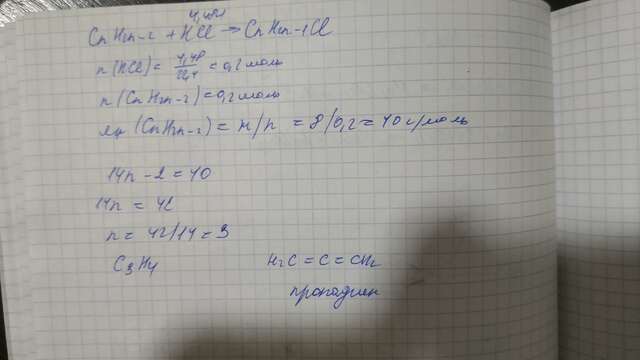 4,48л
CnH2n-2 + HCl → CnH2n-1Cl
n(HCl) = 4,48/22,4 = 0,2 моль
n(CnH2n-2) = 0,2 моль
M(CnH2n-2) = m/n = 8/0,2 = 40 г/моль
14n - 2 = 40
14n = 42
n = 42/14 = 3
C3H4 H2C = C = CH2
пропадиен